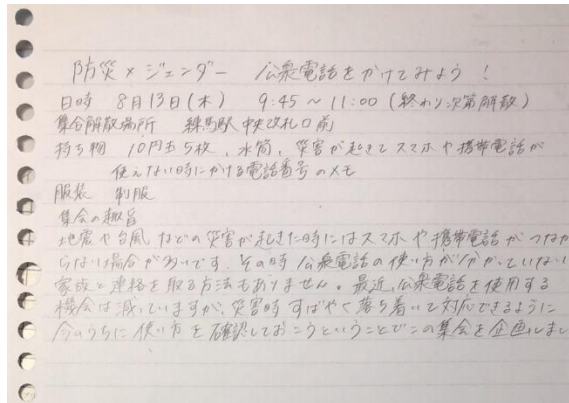 防災×ジェンダー 公衆電話をかけてみよう！
日時 8月13日(木) 9:45～11:00 (終わり次第解散)
集合解散場所 練馬駅中央改札口前
持ち物 10円玉5枚、水筒、災害が起きてスマホや携帯電話が
使えない時にかける電話番号のメモ
服装 制服
集会の趣旨
地震や台風などの災害が起きた時にはスマホや携帯電話がつなが
らない場合が多いです。その時公衆電話の使い方が分かっていない
家族と連絡を取る方法もありません。最近公衆電話を使用する
機会は減っていますが、災害時すばやく落ち着いて対応できるように
今のうちに使い方を確認しておこうということでこの集会を企画しまし